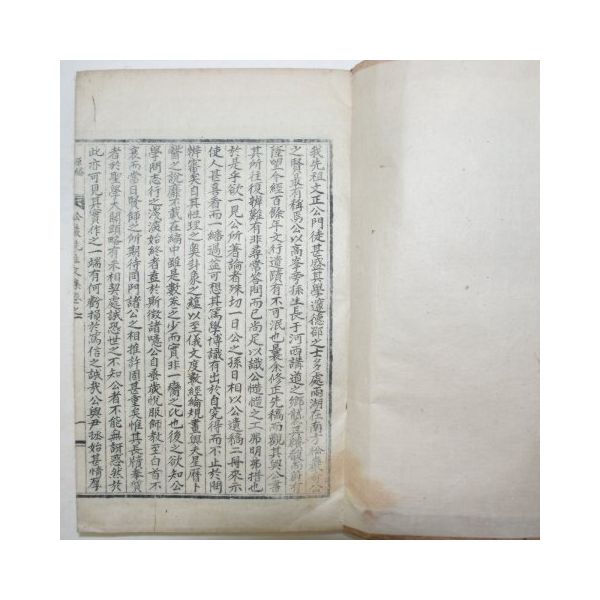 我先祖文正公門徒甚盛其學邃德邵之士多處兩湖在南方
之賢最有稱焉公以高峯李孫生長于河西講道之鄕
證而今經百餘年文行遺蹟有不可泯也曩余修正先稿而觀其與公書
其所往復辨難有非尋常答問而已尚足以識公慥慥之工那明弟措也
於是乎欲一見公所著論者殊切一日公之孫日相公遺稿二冊來示
使人甚喜看而一繙過益可想其篤學博識有出於自究得而不止於問
辨審矣自其性理之奧卦象之蘊以至儀文度數經綸規畫與夫星曆卜
醫之說靡不載在編中雖是數卷之少而實非一臠之比也後之欲知公
學問志行之淺深始終者盍於斯徵諸噫公自妾歲悅服師教至白首不
衰而當日賢師之所期待同門諸公之相推許固甚重矣惟其長牘奉質
者於聖學大關頭略有未相契處試恐世之不知公者不能無訝惑然於
此亦可見其實作之一端有何虧損於篤信之誠我公與尹拯始甚情厚
先生文集卷之